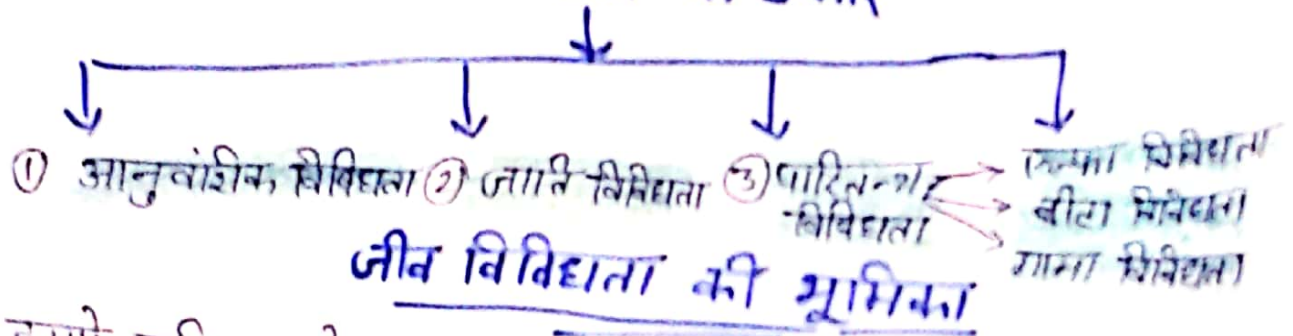 ① आनुवांशिक विविधता ② जाति विविधता ③ पारितन्त्र विविधता
अल्फा विविधता
बीटा विविधता
गामा विविधता
जीव विविधता की भूमिका